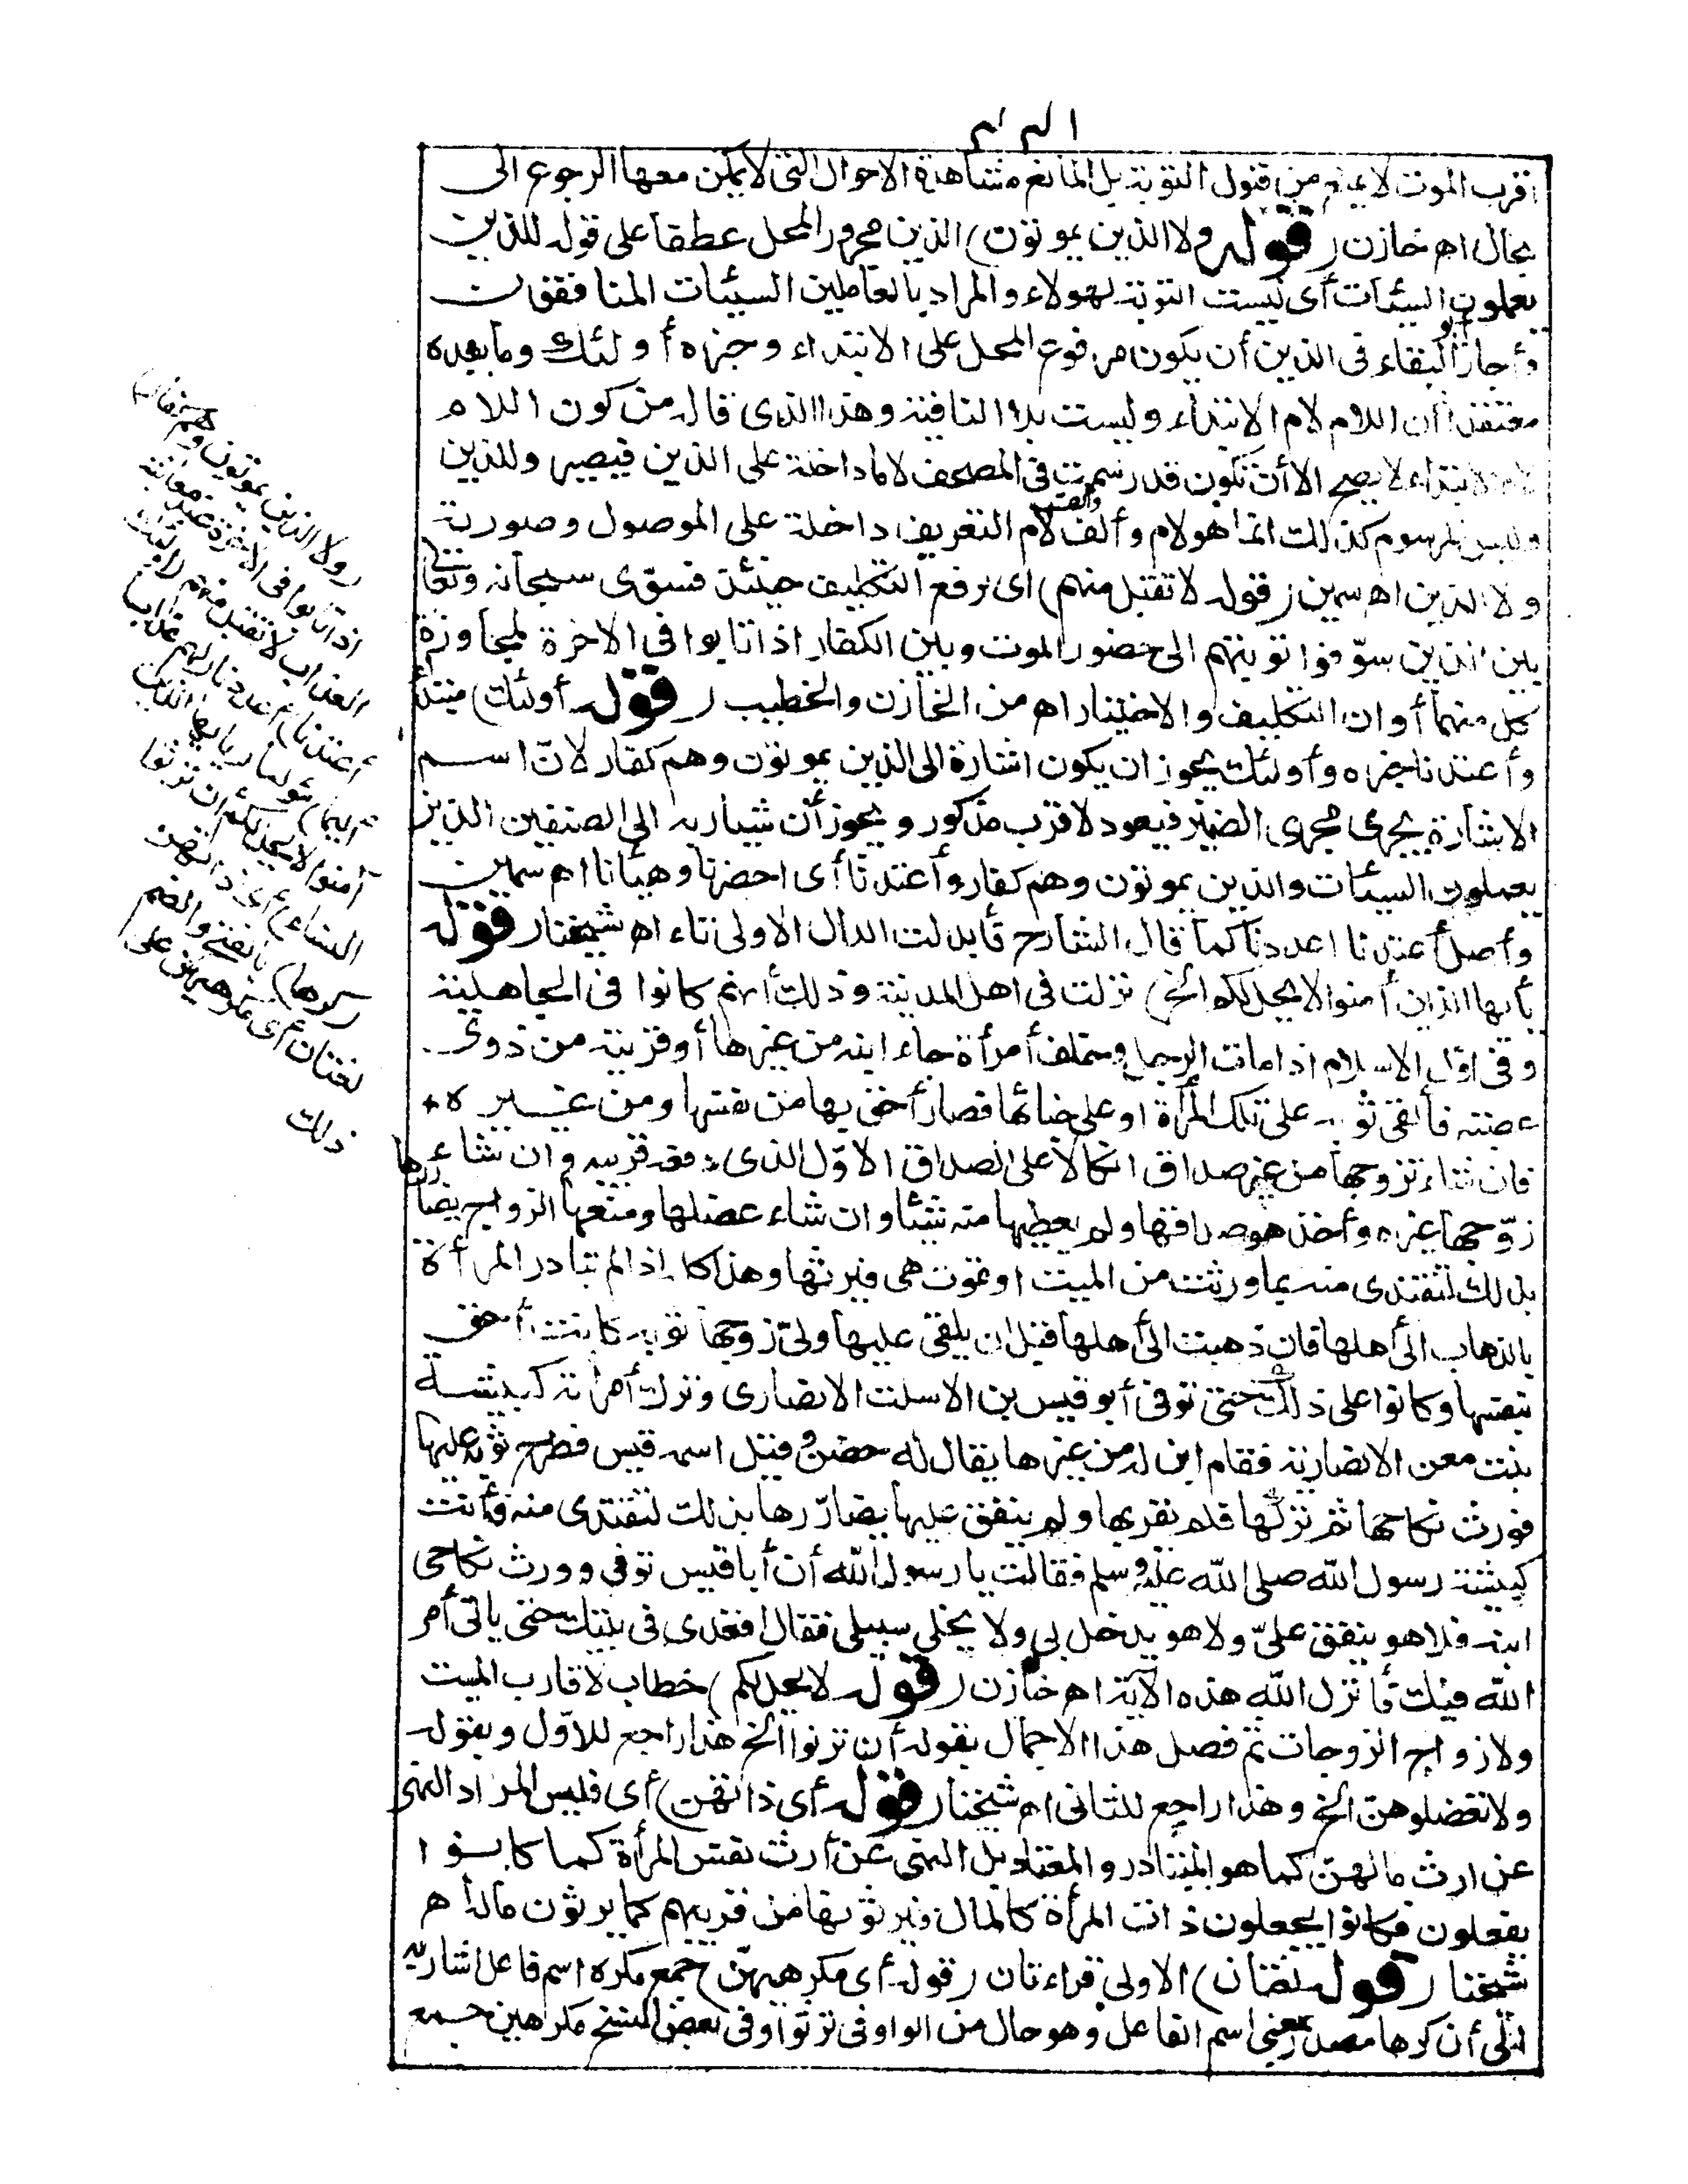 قرب الموت لا يمنع من قبول التوبة بل المانع مشاهدة الاحوال التى لا يمكن معها الرجوع الى
بحال اه خازن (قوله ولا الذين يموتون) الذين مجرور المحل عطفا على قوله للذين
يعملون السيئات أى ليست التوبة لهولاء والمراد بالعاملين السيئات المنافقون
وأجاز أبو البقاء فى الذين أن يكون مرفوع المحل على الابتداء وخبره أولئك وما بعده
معتقدا أن اللام لام الابتداء وليست بلا النافية وهذا الذى قاله من كون اللام
لام الابتداء لا يصح الا أن تكون قد رسمت فى المصحف لاما داخلة على الذين فيصير وللذين
وليس المرسوم كذلك انما هو لام وألف وألف لام التعريف داخلة على الموصول وصورته
ولا الذين اه سمين (قوله لا تقبل منهم) اى برفع التكليف حينئذ فسوّى سبحانه وتعالى
بين الذين سوّفوا توبتهم الى حضور الموت وبين الكفار اذا تابوا فى الاخرة لمجاوزة
كل منهما أوان التكليف والاختيار اه من الخازن والخطيب (قوله أولئك) مبتدأ
وأعتدنا خبره وأولئك يجوز ان يكون اشارة الى الذين يموتون وهم كفار لانّ اسم
الاشارة يجرى مجرى الضمير فيعود لاقرب مذكور ويجوز أن يشار به الى الصنفين الذين
يعملون السيئات والذين يموتون وهم كفار وأعتدنا أى احضرنا وهيأنا اه سمين
وأصل أعتدنا اعددنا كما قال الشارح فأبدلت الدال الاولى تاء اه شيخنا (قوله
يأيها الذين آمنوا لا يحل لكم الخ) نزلت فى اهل المدينة وذلك أنهم كانوا فى الجاهلية
وفى اوّل الاسلام اذا مات الرجل وخلف أمرأة جاء ابنه من غيرها أو قريبه من ذوى
عصبته فألقى ثوبه على تلك المرأة او على خبائها فصار أحق بها من نفسها ومن غيره
فان شاء تزوجها من غير صداق اتكالا على الصداق الاوّل الذى دفعه قريبه وان شاء
زوّجها غيره وأخذ هو صداقها ولم يعطيها منه شيئا وان شاء عضلها ومنعها الزواج يضارّها
بذلك لتفتدى منه بما ورثت من الميت او تموت هى فيرثها وهذا كله اذا لم تبادر المرأة
بالذهاب الى أهلها فان ذهبت الى أهلها قبل ان يلقى عليها ولىّ زوجها ثوبه كانت أحق
بنفسها وكانوا على ذلك حتى توفى أبو قيس بن الاسلت الانصارى وترك أمرأته كبيشة
بنت معن الانصارية فقام ابن له من غيرها يقال له حصن وقيل اسمه قيس فطرح ثوبه عليها
فورث نكاحها ثم تركها فلم يقربها ولم ينفق عليها يضارّرها بذلك لتفتدى منه فأتت
كبيشة رسول الله صلى الله عليه وسلم فقالت يا رسول الله أن أبا قيس توفى وورث نكاحى
ابنه فلا هو ينفق علىّ ولا هو يدخل بى ولا يخلى سبيلى فقال اقعدى فى بيتك حتى ياتى أمر
الله فيك فأنزل الله هذه الآية اه خازن (قوله لا يحل لكم) خطاب لاقارب الميت
ولازواج الزوجات ثم فصل هذا الاجمال بقوله أن ترثوا الخ هذا راجع للاوّل وبقوله
ولا تعضلوهنّ الخ وهذا راجع للثانى اه شيخنا (قوله أى ذاتهن) أى فليس المراد النهى
عن ارث مالهنّ كما هو المتبادر والمعتاد بل النهى عن أرث نفس المرأة كما كانوا
يفعلون فكانوا يجعلون ذات المرأة كالمال فيرثونها من قريبهم كما يرثون ماله اه
شيخنا (قوله لغتان) الاولى قراءتان (قوله أى مكرهيهنّ) جمع مكره اسم فاعل اشار به
الى أن كرها مصدر بمعنى اسم الفاعل وهو حال من الواو فى ترثوا وفى بعض النسخ مكرهين جمع
(ولا الذين يموتون وهم كفار)
اذا تابوا فى الاخرة عند معاينة
العذاب لا تقبل منهم (اولئك
أعتدنا) اعددنا (لهم عذابا
أليما) مؤلما (يا أيها الذين
آمنوا لا يحل لكم أن ترثوا
النساء) أى ذاتهن
(كرها) بالفتح والضم
لغتان أى مكرهيهن على
ذلك